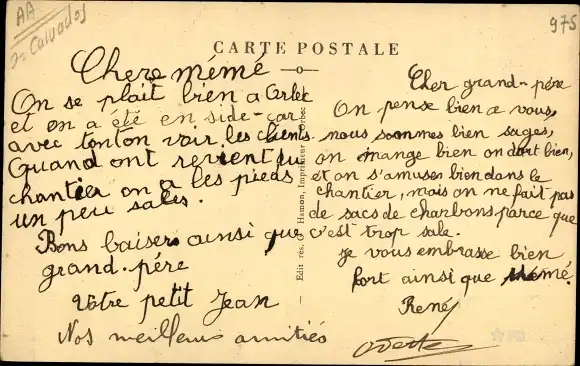 AA
2= Calvados
975
CARTE POSTALE
Chere mémé
On se plait bien a Orbec
et on a été en side-car
avec tonton voir les clients
Quand ont revient du
chantier on a les pieds
un peu sales.
Bons baisers ainsi que
grand-pére
Votre petit Jean
Nos meilleurs amitiés
Edit rés. G. Hamon, Imprimeur Orbec.
Cher grand-pére
On pense bien a vous,
nous sommes bien sages,
on mange bien on dort bien,
et on s'amuses bien dans le
chantier, mais on ne fait pas
de sacs de charbons parce que
c'est trop sale.
Je vous embrasse bien
fort ainsi que mémé.
René
Odette